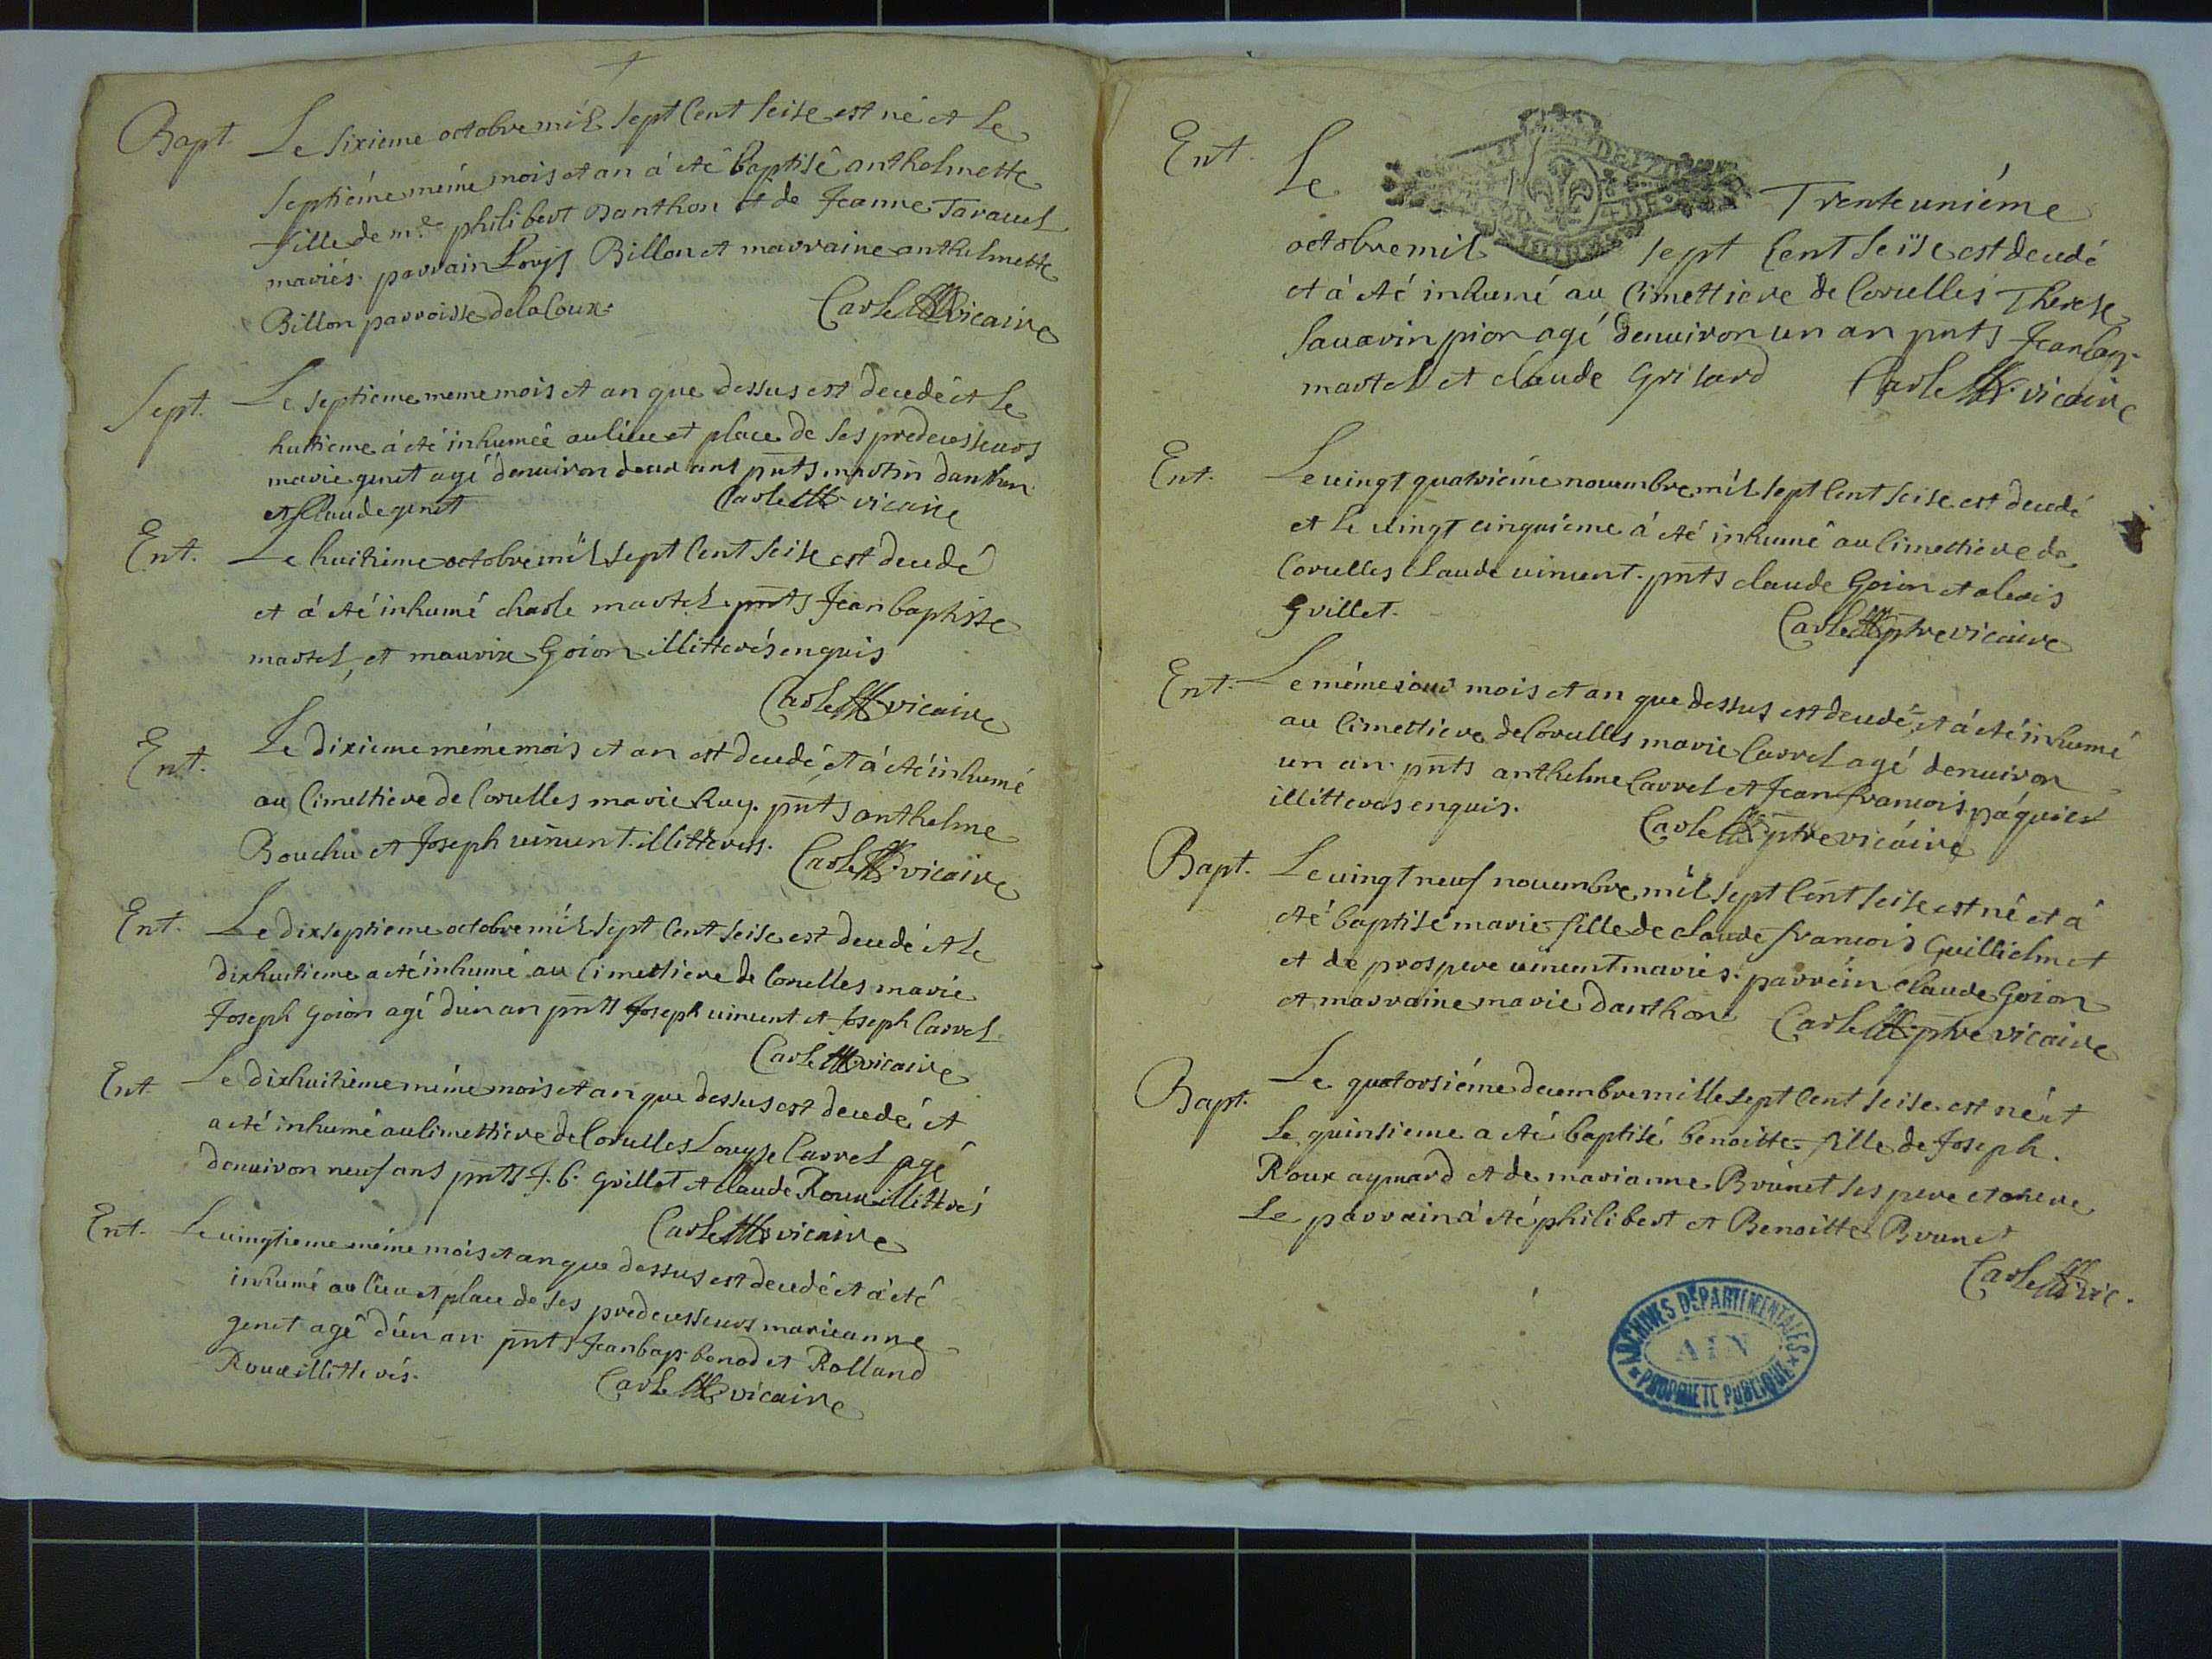 Bapt. Le sixieme octobre mil sept cent seise est né et le
septiéme même mois et an à eté baptisé anthelmette
fille de mre philibert Danthon et de Jeanne Taravel
mariés. parrain Louys Billon et marraine anthelmette
Billon parroisse de la Coux.
Carle vicaire
Sept. Le septieme meme mois et an que dessus est decedé et le
huitieme à eté inhumée au lieu et place de ses predecesseurs
marie genet agé denuiron deux ans pnts martin danthon
et Claude genet
Carle vicaire
Ent. Le huitieme octobre mil sept cent seise est decedé
et à eté inhumé charle martel pnts Jean baptiste
martel, et maurix Goion illitterés enquis
Carle vicaire
Ent. Le dixieme même mois et an est decedé et à eté inhumé
au Cimettiere de Corcelles marie Ruy. pnts anthelme
Bouchu et Joseph uincent. illitterés.
Carle vicaire
Ent. Le dixseptieme octobre mil sept cent seise est decedé et le
dixhuitieme a eté inhumé au Cimettiere de Corcelles marie
Joseph Goion agé d'un an pnts Joseph uincent et Joseph Carrel
Carle vicaire
Ent. Le dixhuitième même mois et an que dessus est decedé et
a eté inhumé au Cimettiere de Corcelles Louyse Carrel agé
denuiron neuf ans pnts J. b. Grillet et Claude Roux illittrés
Carle vicaire
Ent. Le uingtieme même mois et an que dessus est decedé et à eté
inhumé au lieu et place de ses predecesseurs marieanne
genet agé d'un an pnts Jean bap. benod et Rolland
Roux illitterés.
Carle vicaire
Ent. Le Trente uniéme
octobre mil sept Cent seise est decedé
et à eté inhumé au Cimettiere de Corcelles Therese
Sauarin pion agé denuiron un an pnts Jean bap.
martel et claude Grisard
Carle vicaire
Ent. Le uingt quatriéme nouembre mil sept cent seise est decedé
et le uingt cinquieme à eté inhumé au Cimettiere de
Corcelles Claude uincent. pnts claude Goion et alexis
Grillet.
Carle ptre vicaire
Ent. Le même jour mois et an que dessus est decedé, et à eté inhumé
au Cimettiere de Corcelles marie Carrel agé denuiron
un an. pnts anthelme Carrel et Jean francois páquier
illitteres enquis.
Carle ptre vicáire
Bapt. Le uingt neuf nouembre mil sept cent seise est né et à
eté baptisé marie fille de claude francois Guillielmet
et de prospere uincent mariés. parrein Claude Goion
et marraine marie danthon
Carle ptre vicaire
Bapt. Le quatorsiéme decembre mille sept cent seise est né et
le quinsieme a eté baptisé benoitte fille de Joseph.
Roux aymard et de marianne Brunet ses pere et mere
Le parrain à eté philibert et Benoitte Brunet
Carle vic.
ARCHIVES DÉPARTEMENTALES
AIN
PROPRIÉTÉ PUBLIQUE